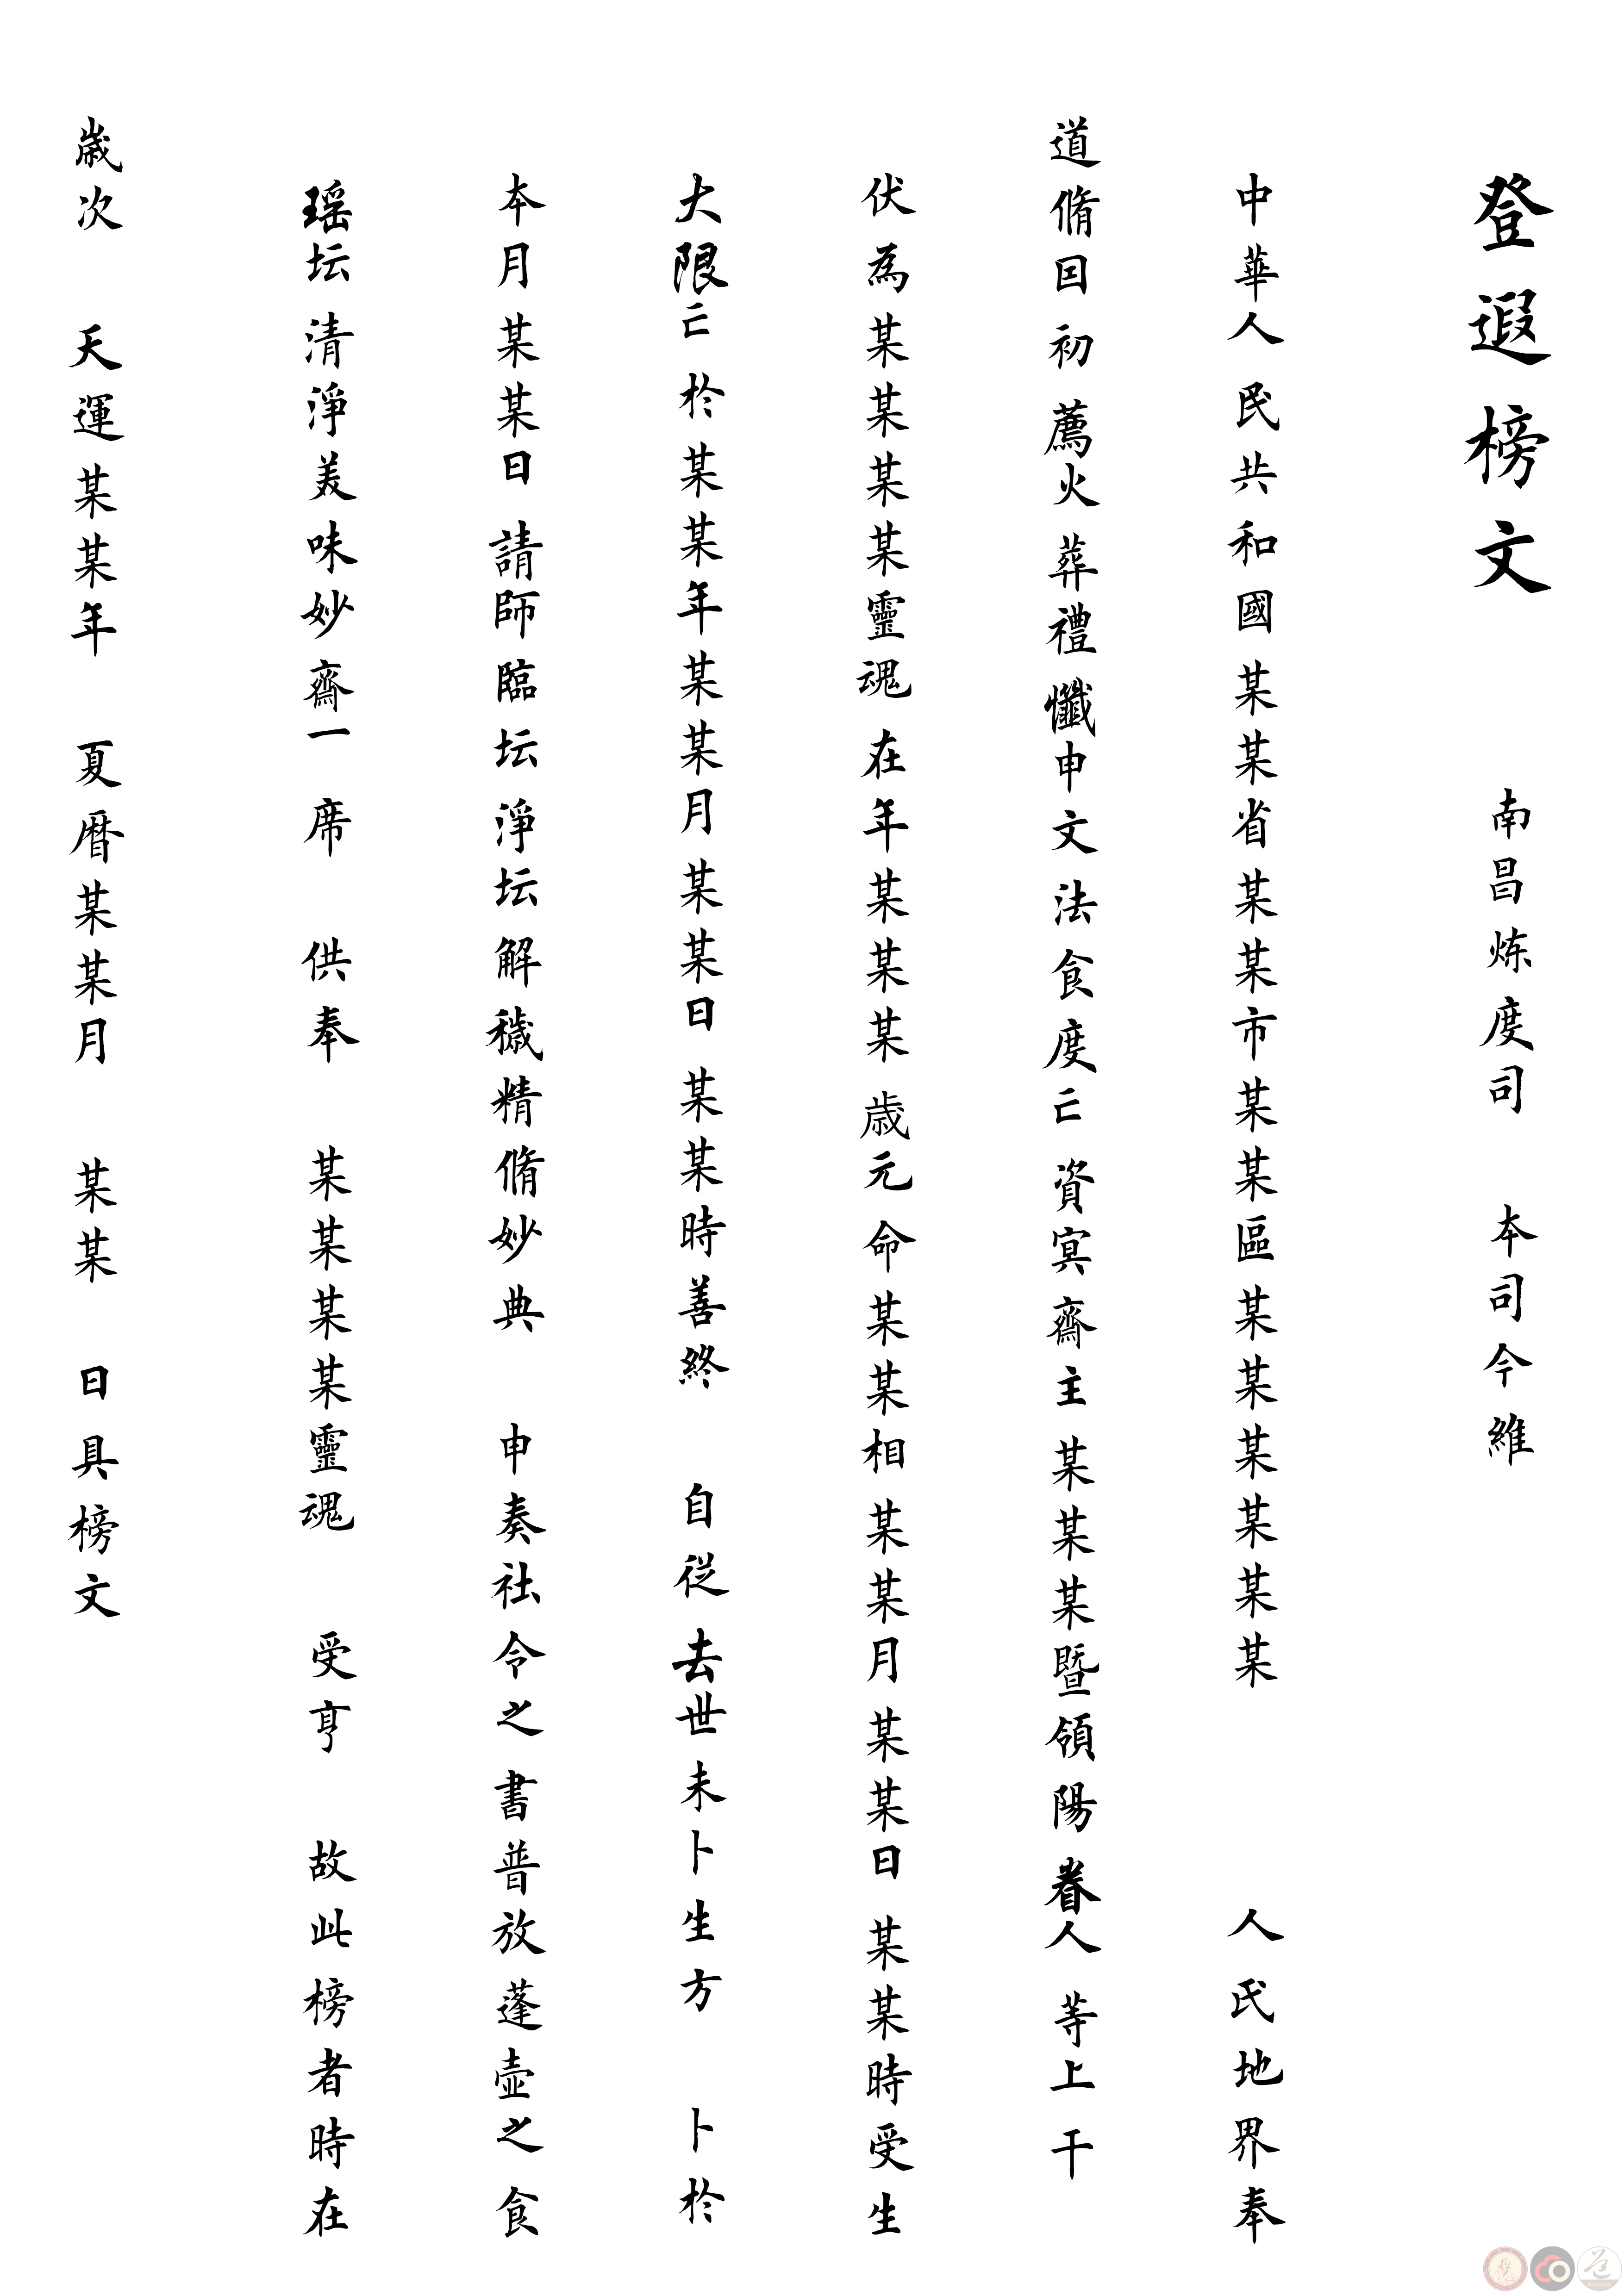 登遐榜文 南昌炼度司 本司今維
中華人民共和國某某省某某市某某區某某某某某某 人民地界奉
道脩囙初薦火葬禮懺申文法食度亡資冥齋主某某某暨領陽眷人等上干
伏為某某某某靈魂在年某某某歳元命某某相某某月某某日某某時受生
大限亡於某某年某某月某某日某某時善終 自従去世未卜生方 卜於
本月某某日請師臨坛淨坛解穢精脩妙典 申奏社令之書普放蓬壺之食
瑶坛清淨美味妙齋一席 供奉 某某某某靈魂 受亨 故此榜者時在
歲次 天運某某年 夏曆某某月 某某 日具榜文